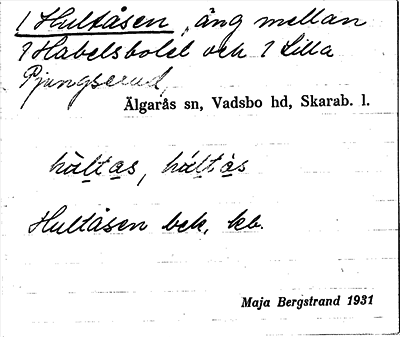 1 Hultåsen, äng mellan
1 Habelsbolet och 1 Lilla
Älgarås sn, Vadsbo hd, Skarab. l.
Hultåsen bek, kb.
Maja Bergstrand 1931